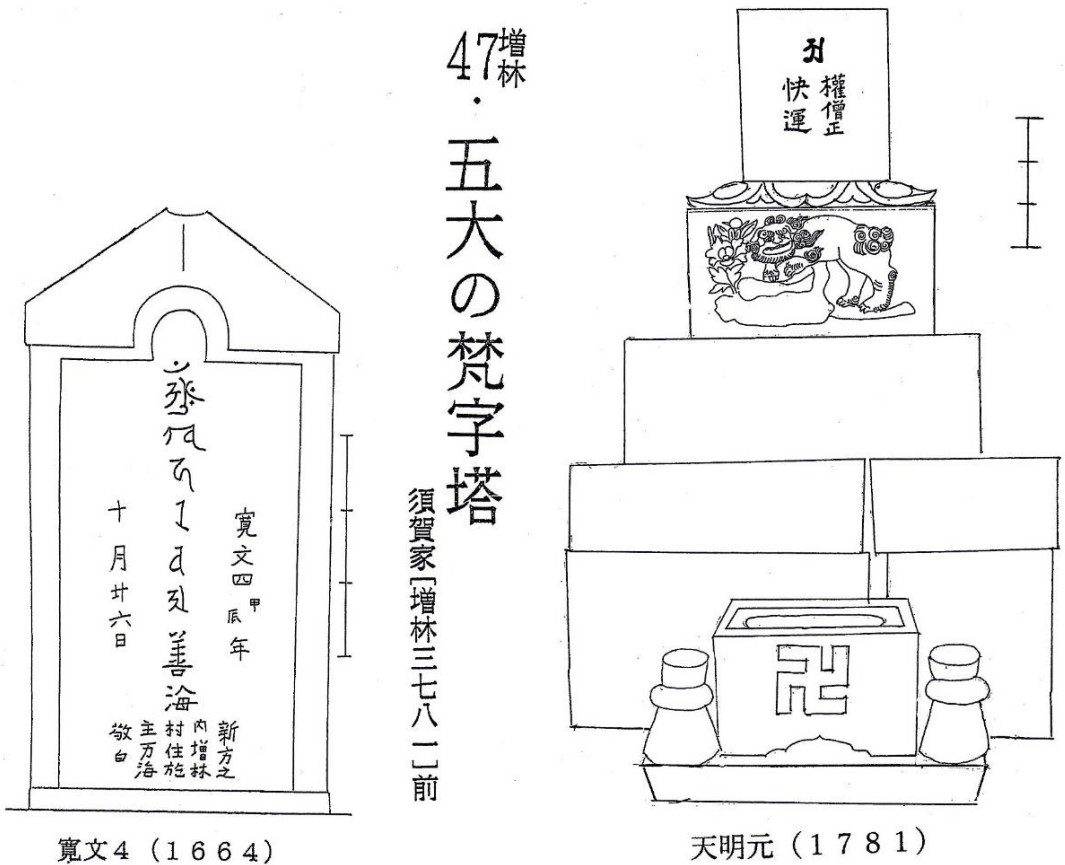 増林
47・五大の梵字塔
須賀家[増林三七八一]前
權僧正
快運
天明元（1781）
寛文四甲辰年
善海
十月廿六日
新方之
内増林
村住施
主万海
敬白
寛文4（1664）